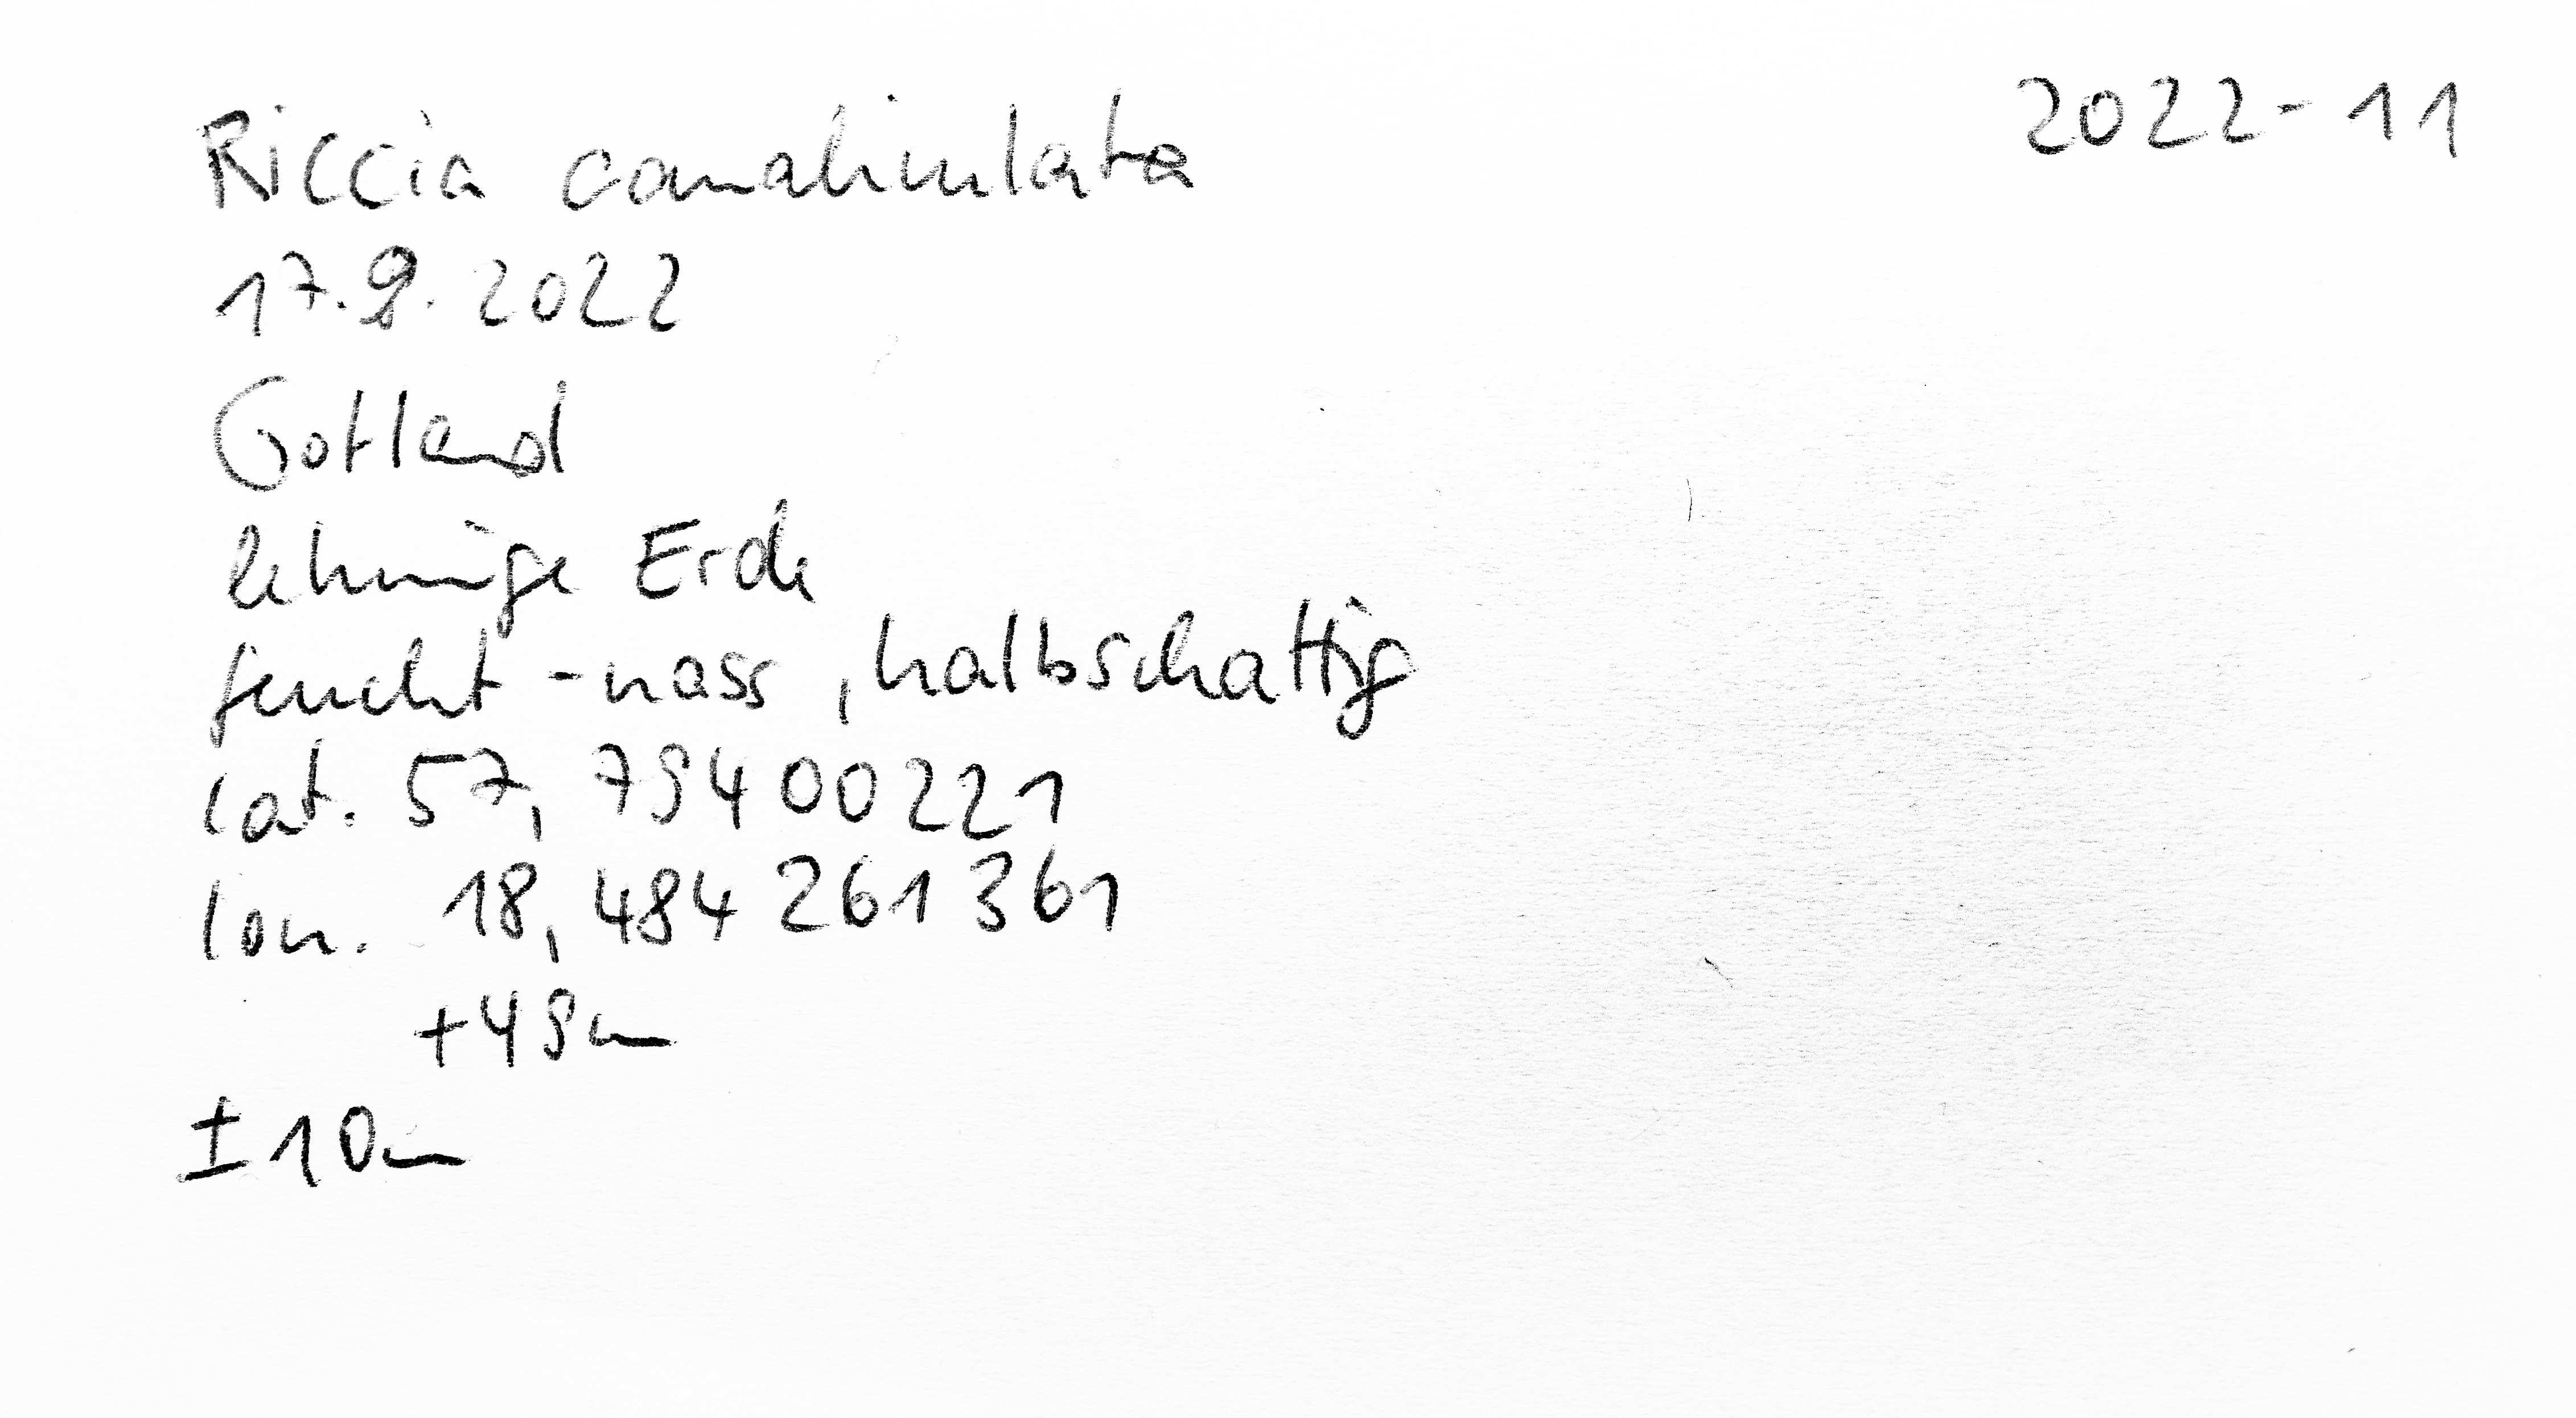 Riccia canaliculata 2022-11
17.9.2022
Gotland
lehmige Erde
feucht-nass, halbschattig
lat. 57,79400221
lon. 18,484 261 361
+49m
±10m